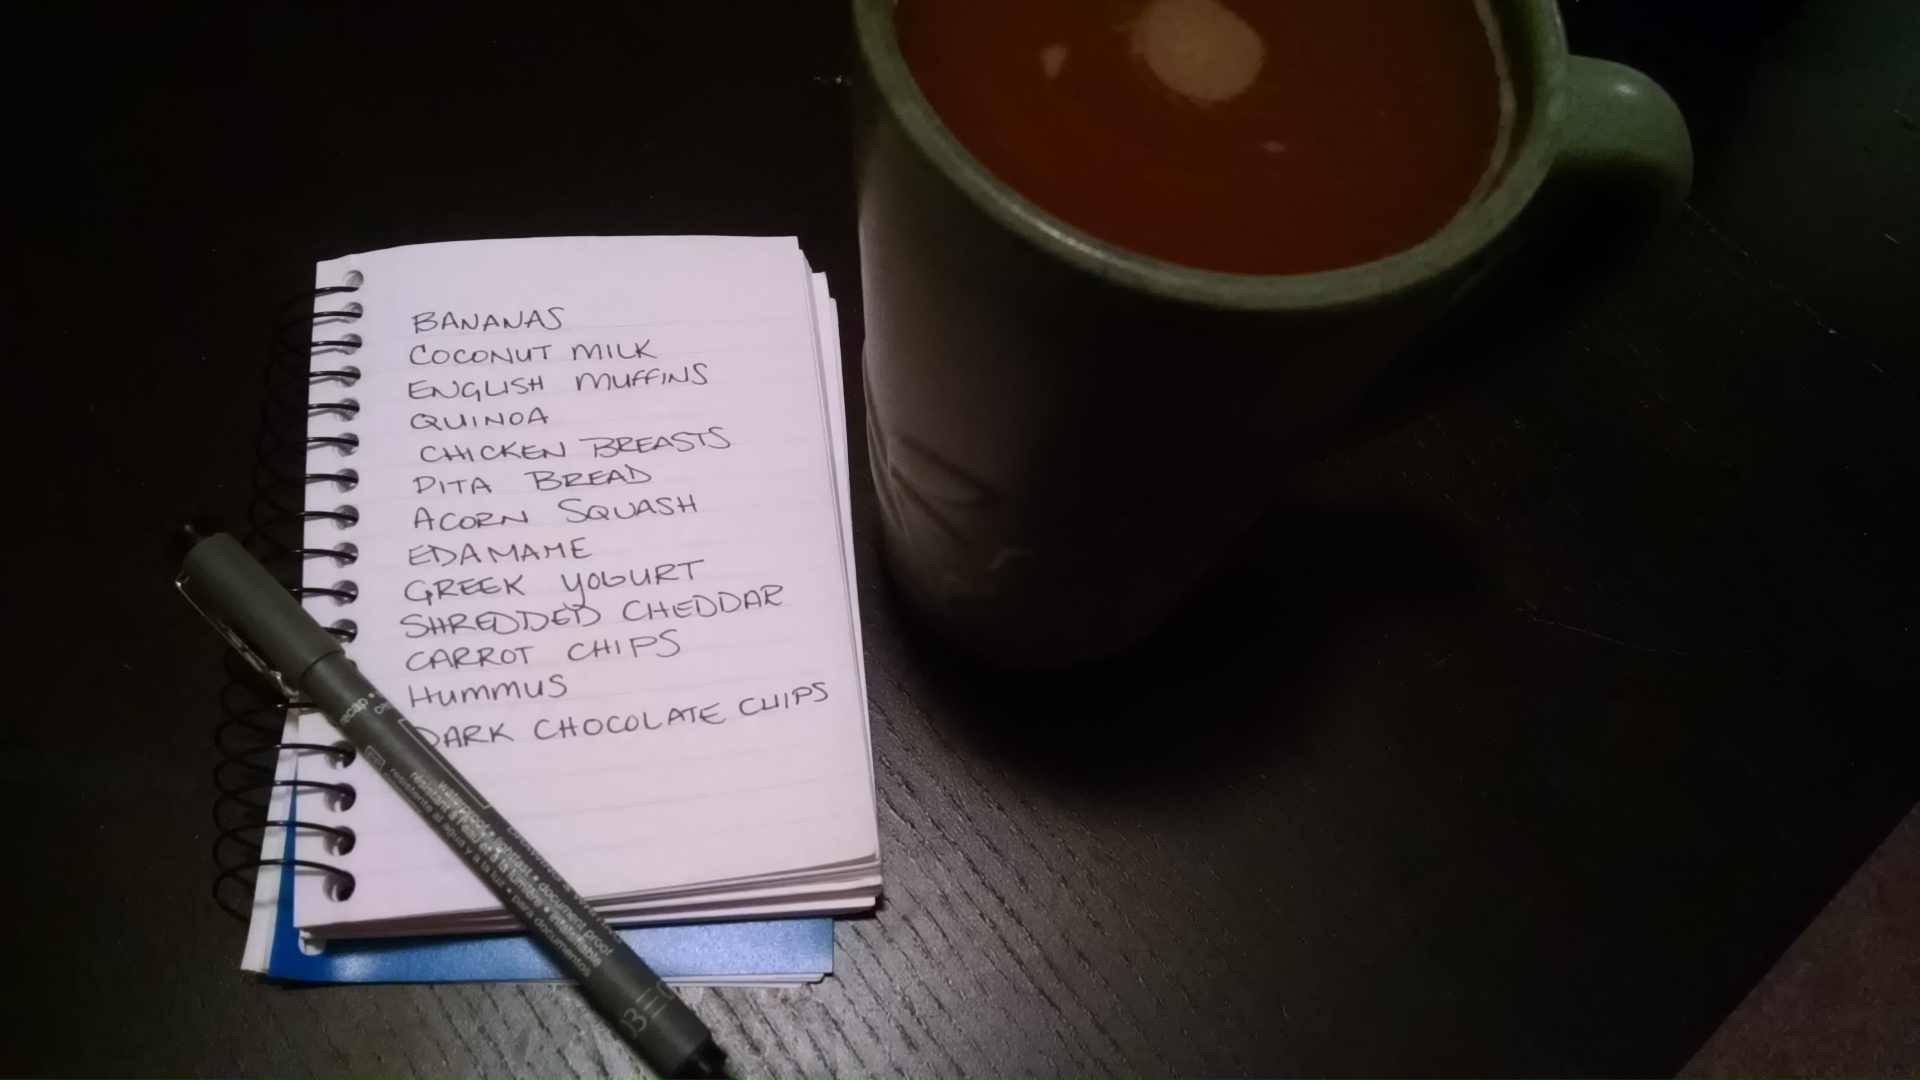 BANANAS
COCONUT MILK
ENGLISH MUFFINS
QUINOA
CHICKEN BREASTS
PITA BREAD
ACORN SQUASH
EDAMAME
GREEK YOGURT
SHREDDED CHEDDAR
CARROT CHIPS
HUMMUS
DARK CHOCOLATE CHIPS
recap •
waterproof •
• document proof
para documentos